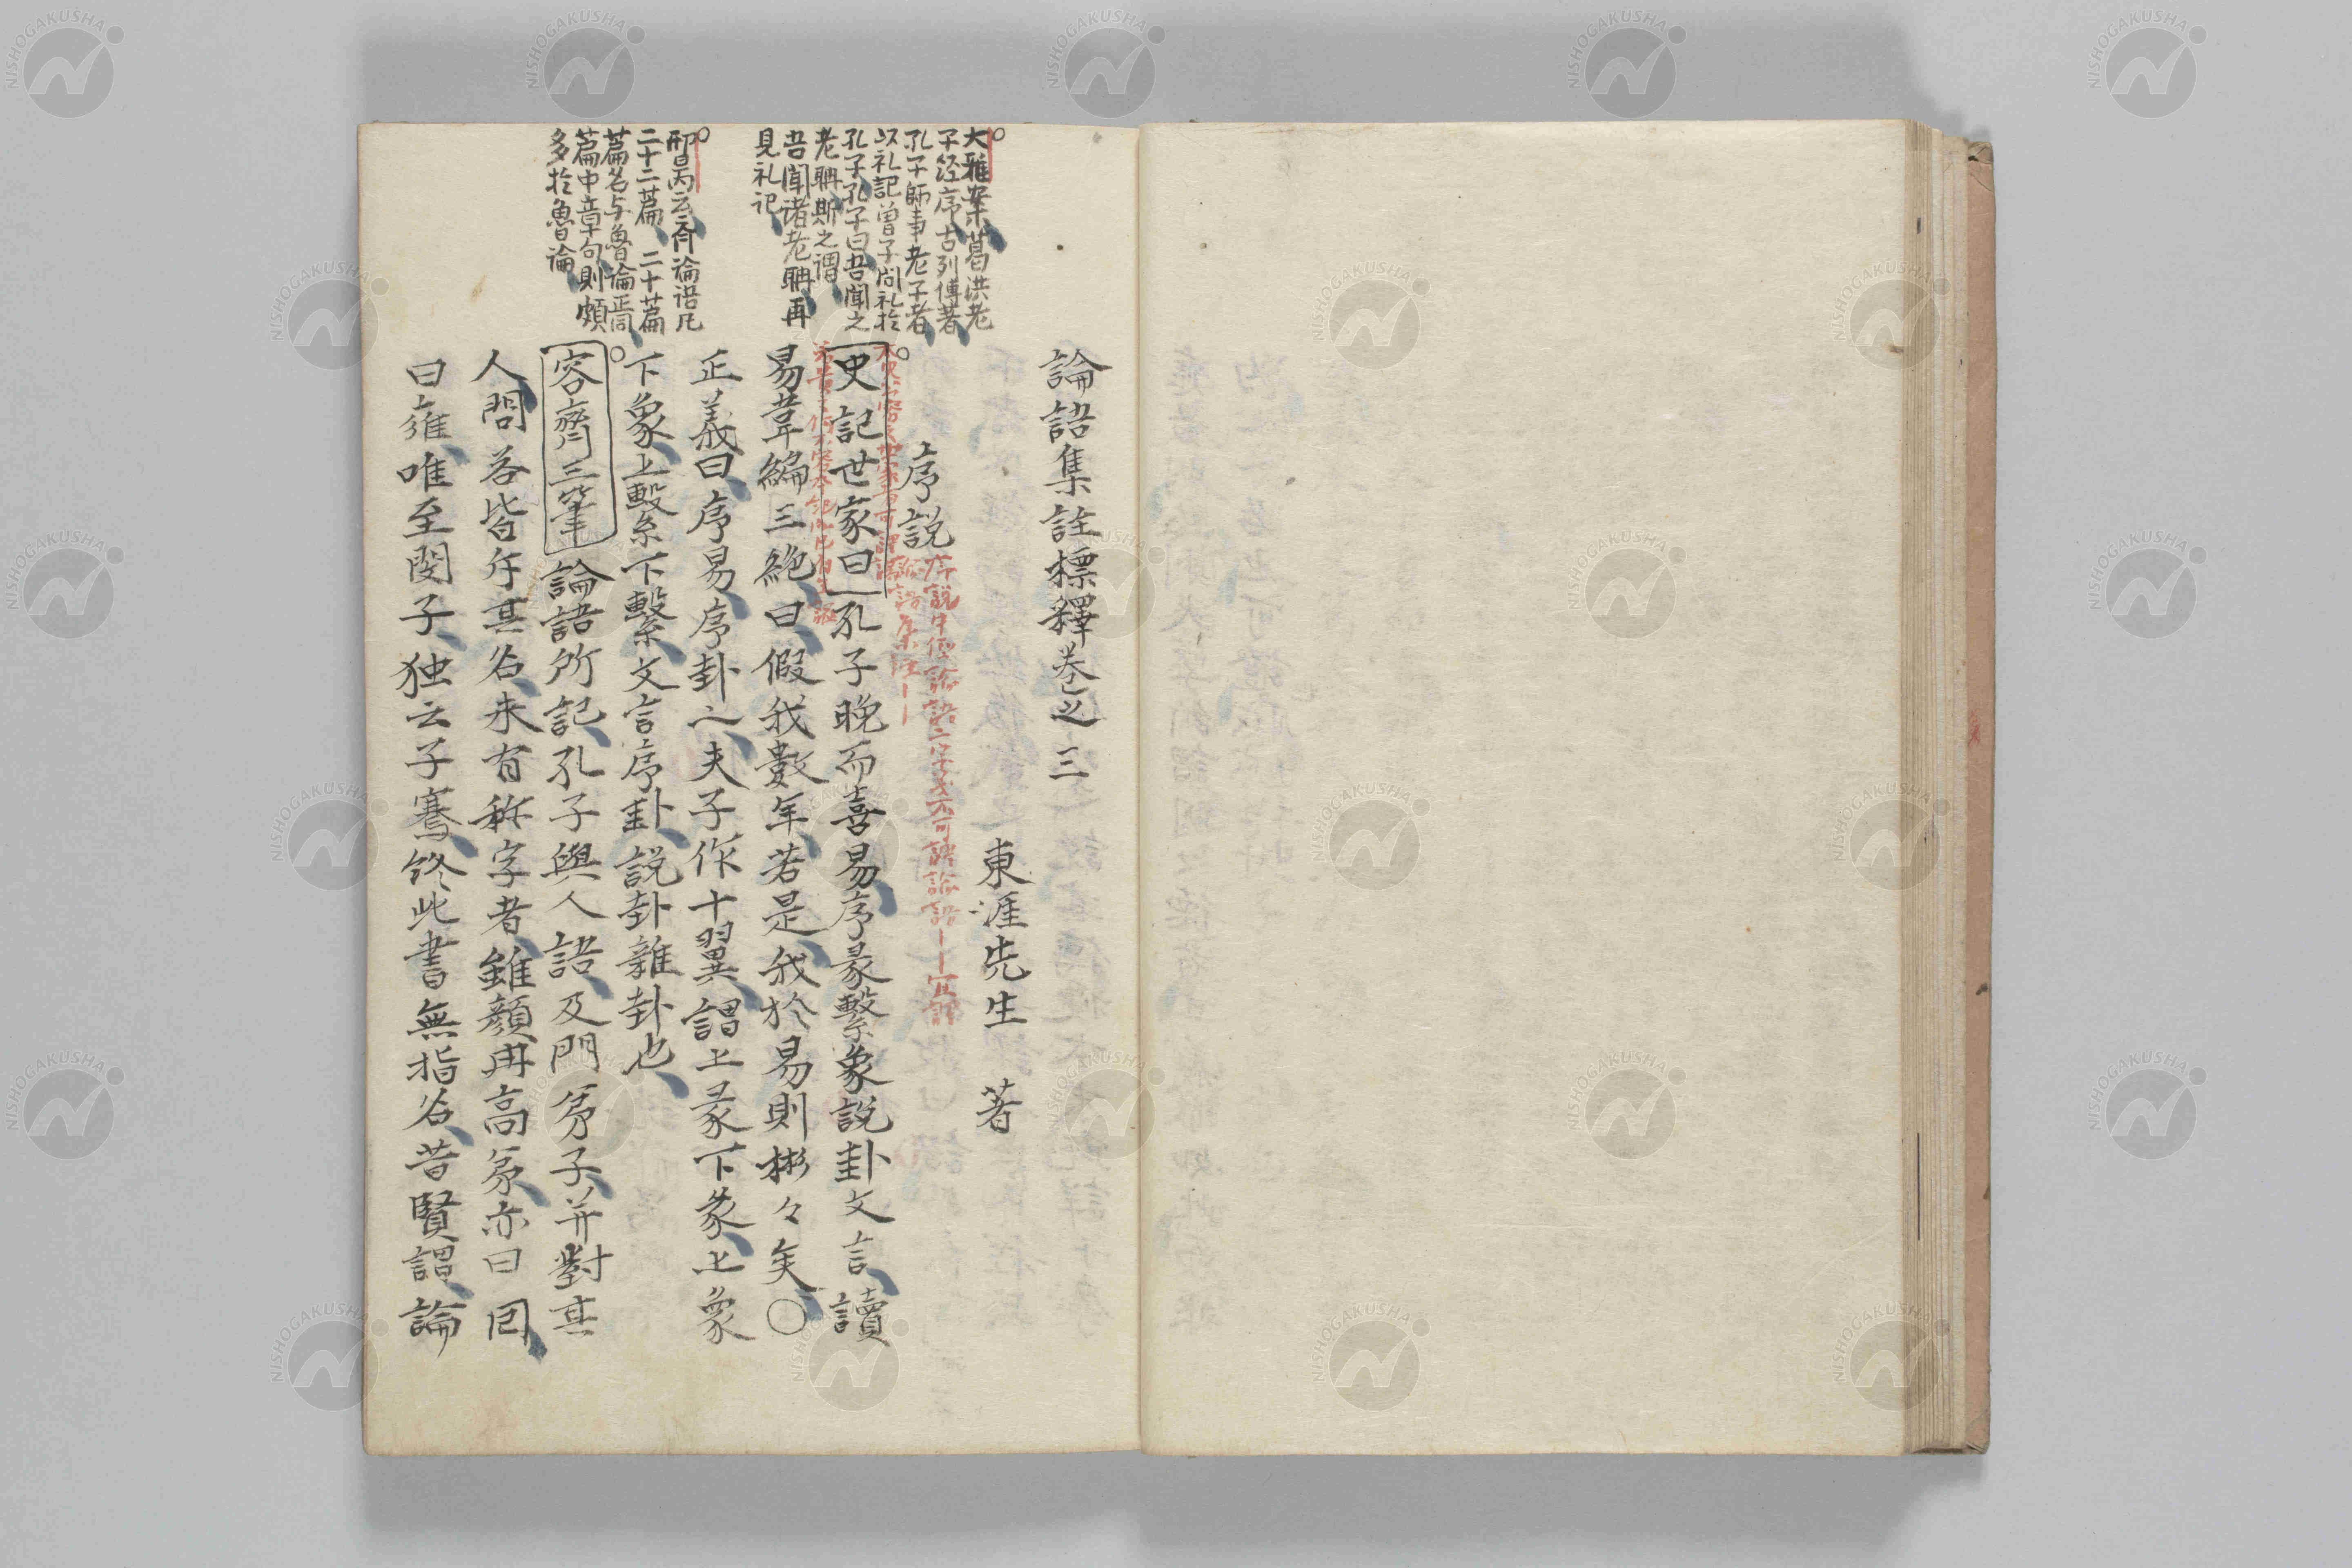 論語集註標釋巻之三
東涯先生　著
序説
史記世家曰孔子晩而喜易序彖繋象説卦文言讀
易韋編三絶曰假我數年若是我於易則彬々矣○
正義曰序易序卦也夫子作十翼謂上彖下彖上象
下象上繋下繋文言序卦説卦雜卦也
容齋三筆論語所記孔子與人語及門弟子并對其
人問答皆斥其名未有称字者雖顔冉高弟亦曰回
曰雍唯至閔子独云子騫終此書無指名昔賢謂論
大雅案葛洪老
子経序古列傳著
孔子師事老子者
以礼記曽子問礼於
孔子孔子曰吾聞之
老聃斯之謂
吾聞诸老聃再
見礼记
邢昺云斉論语凡
二十二篇二十篇
篇名与魯論焉
篇中章句則頗
多於魯論
序説中但論語二字或不可読論語
NISHOGAKUSHA